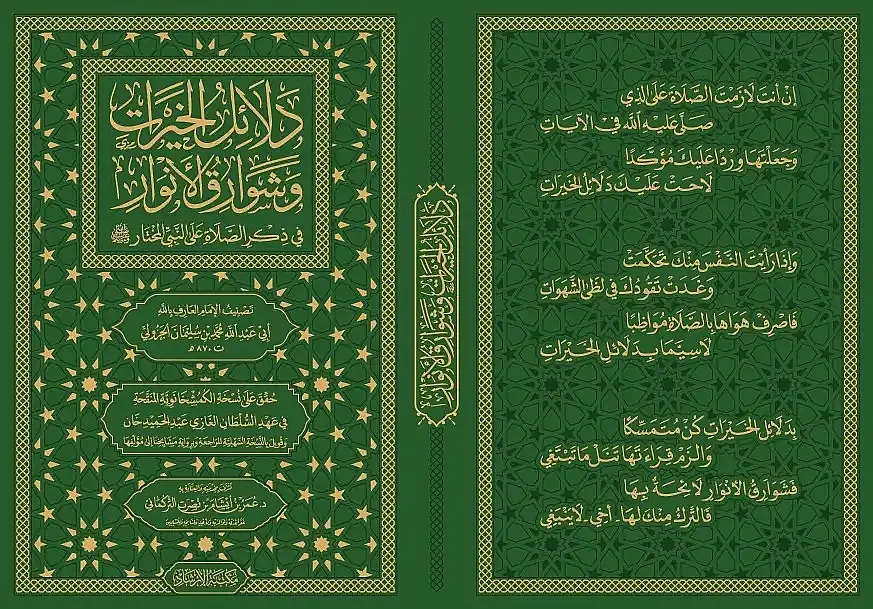 دَلَائِلُ الْخَيْرَاتِ
وَشَوَارِقُ الْأَنْوَارِ
فِي ذِكْرِ الصَّلَاةِ عَلَى النَّبِيِّ الْمُخْتَارِ ﷺ
تَصْنِيفُ الْإِمَامِ الْعَارِفِ بِاللهِ
أَبِي عَبْدِ اللهِ مُحَمَّدِ بْنِ سُلَيْمَانَ الْجَزُولِيِّ
ت ٨٧٠ هـ
حُقِّقَ عَلَى نُسْخَةِ الْكُمُشْخَانَوِيَّةِ الْمُنَقَّحَةِ
فِي عَهْدِ السُّلْطَانِ الْغَازِي عَبْدِ الْحَمِيدِ خَان
وَقُوبِلَ بِالنُّسْخَةِ السَّهْلِيَّةِ الْمُرَاجَعَةِ وَبِرِوَايَةِ مَشَايِخِنَا إِلَى مُؤَلِّفِهَا
د. عُمَرُ بْنُ أَبْسَامِ بْنِ نُصْرَت التُّرْكُمَانِي
مَكْتَبَةُ الْإِرْشَادِ
دَلَائِلُ الْخَيْرَاتِ وَشَوَارِقُ الْأَنْوَارِ
إِنْ أَنْتَ لَازَمْتَ الصَّلَاةَ عَلَى الَّذِي
صَلَّى عَلَيْهِ اللهُ فِي الْآيَاتِ
وَجَعَلْتَهَا وِرْدًا عَلَيْكَ مُؤَكَّدًا
لَاحَتْ عَلَيْكَ دَلَائِلُ الْخَيْرَاتِ
وَإِذَا رَأَيْتَ النَّفْسَ مِنْكَ تَحَكَّمَتْ
وَغَدَتْ تَقُودُكَ فِي لَظَى الشَّهَوَاتِ
فَاصْرِفْ هَوَاهَا بِالصَّلَاةِ مُوَاظِبًا
لَا سِيَّمَا بِدَلَائِلِ الْخَيْرَاتِ
بِدَلَائِلِ الْخَيْرَاتِ كُنْ مُتَمَسِّكًا
وَالْزَمْ قِرَاءَتَهَا تَنَلْ مَا تَبْتَغِي
فَشَوَارِقُ الْأَنْوَارِ لَائِحَةٌ بِهَا
فَالتَّرْكُ مِنْكَ لَهَا - أَخِي - لَا يَنْبَغِي